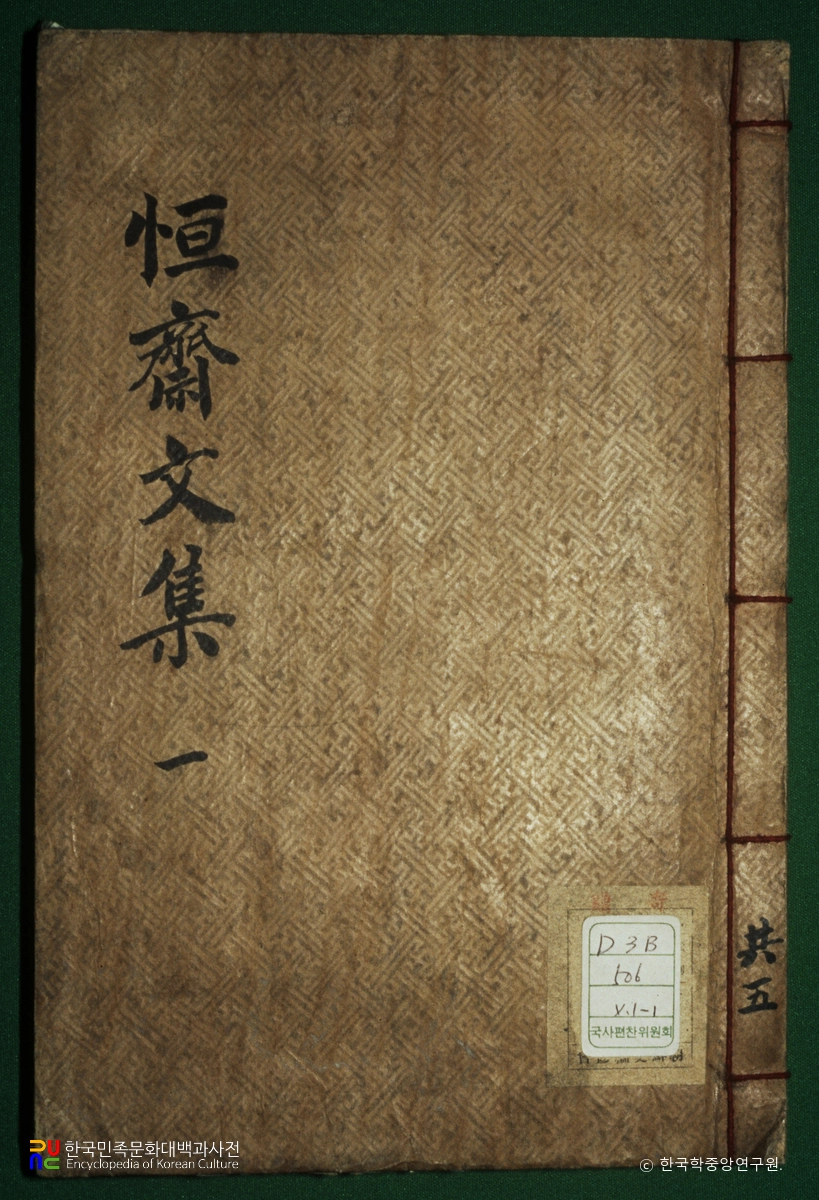 恒齋文集 一
共五
D3B
506
V.1-1
국사편찬위원회
한국민족문화대백과사전
Encyclopedia of Korean Culture
© 한국학중앙연구원.